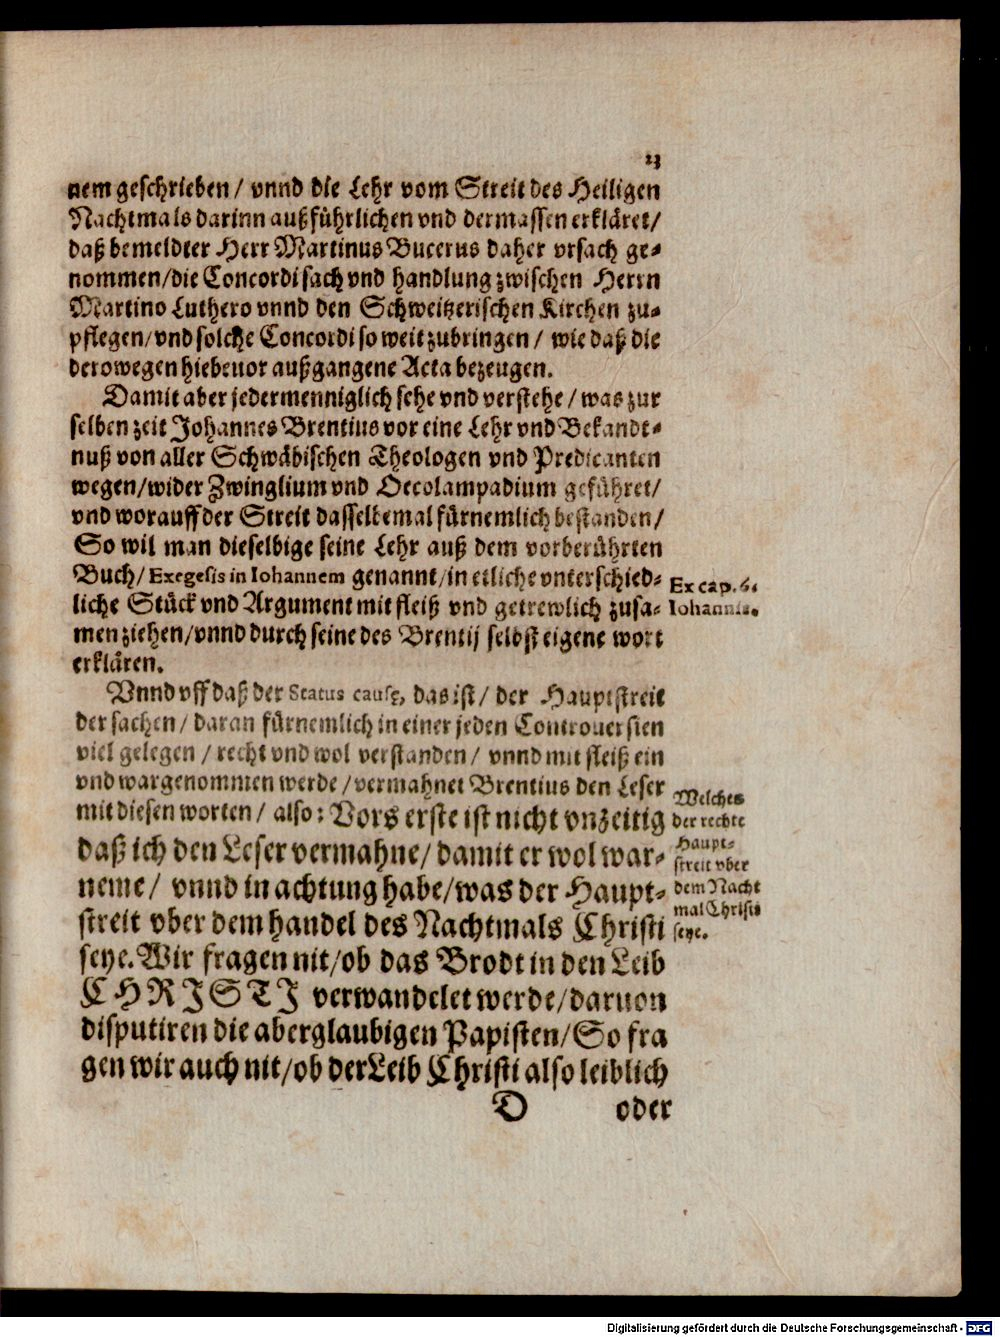 23
nem geschrieben / vnnd die Lehr vom Streit des Heiligen
Nachtmals darinn außführlichen vnd dermassen erkläret /
daß bemeldter Herr Martinus Bucerus daher vrsach ge-
nommen / die Concordi sach vnd handlung zwischen Herrn
Martino Luthero vnnd den Schweitzerischen Kirchen zu-
pflegen / vnd solche Concordi so weit zubringen / wie daß die
derowegen hiebeuor außgangene Acta bezeugen.
Damit aber jedermenniglich sehe vnd verstehe / was zur
selben zeit Johannes Brentius vor eine Lehr vnd Bekandt-
nuß von aller Schwäbischen Theologen vnd Predicanten
wegen / wider Zwinglium vnd Oecolampadium geführet /
vnd worauff der Streit dasselbemal fürnemlich bestanden /
So wil man dieselbige seine Lehr auß dem vorberührten
Buch / Exegesis in Iohannem genannt / in etliche vnterschied-
liche Stück vnd Argument mit fleiß vnd getrewlich zusa-
men ziehen / vnnd durch seine des Brentij selbst eigene wort
erklären.
Ex cap. 6.
Iohannis.
Vnnd vff daß der Status causę, das ist / der Hauptstreit
der sachen / daran fürnemlich in einer jeden Controuersien
viel gelegen / recht vnd wol verstanden / vnnd mit fleiß ein
vnd wargenommen werde / vermahnet Brentius den Leser
mit diesen worten / also: Vors erste ist nicht vnzeitig
daß ich den Leser vermahne / damit er wol war-
neme / vnnd in achtung habe / was der Haupt-
streit vber dem handel des Nachtmals Christi
seye. Wir fragen nit / ob das Brodt in den Leib
CHRISTI verwandelet werde / daruon
disputiren die aberglaubigen Papisten / So fra
gen wir auch nit / ob der Leib Christi also leiblich
Welches
der rechte
Haupt-
streit vber
dem Nacht
mal Christi
seye.
D oder
Digitalisierung gefördert durch die Deutsche Forschungsgemeinschaft - DFG